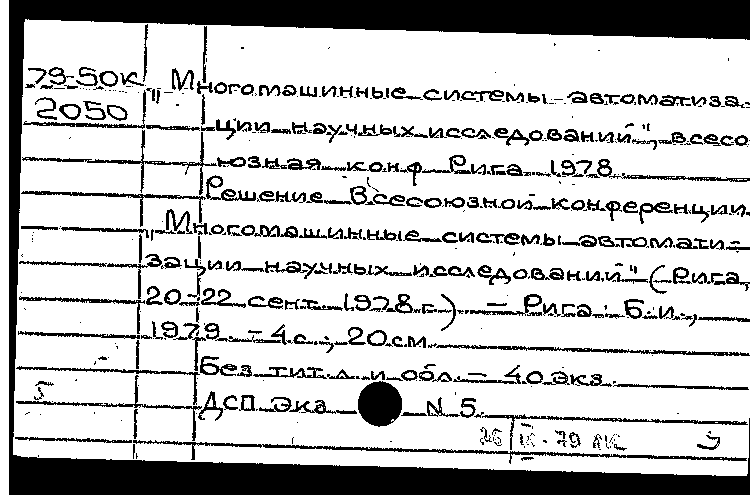 79-50К
2050
"Многомашинные системы автоматиза-
ции научных исследований", всесо
юзная конф Рига 1978.
Решение Всесоюзной конференции
"Многомашинные системы автомати-
зации научных исследований" (Рига,
20-22 сент. 1978 г.) - Рига: Б.и.,
1979. - 4 с.; 20 см
Без тит. л и обл. - 40 экз.
5
ДСП Экз N 5.
26 IX-79